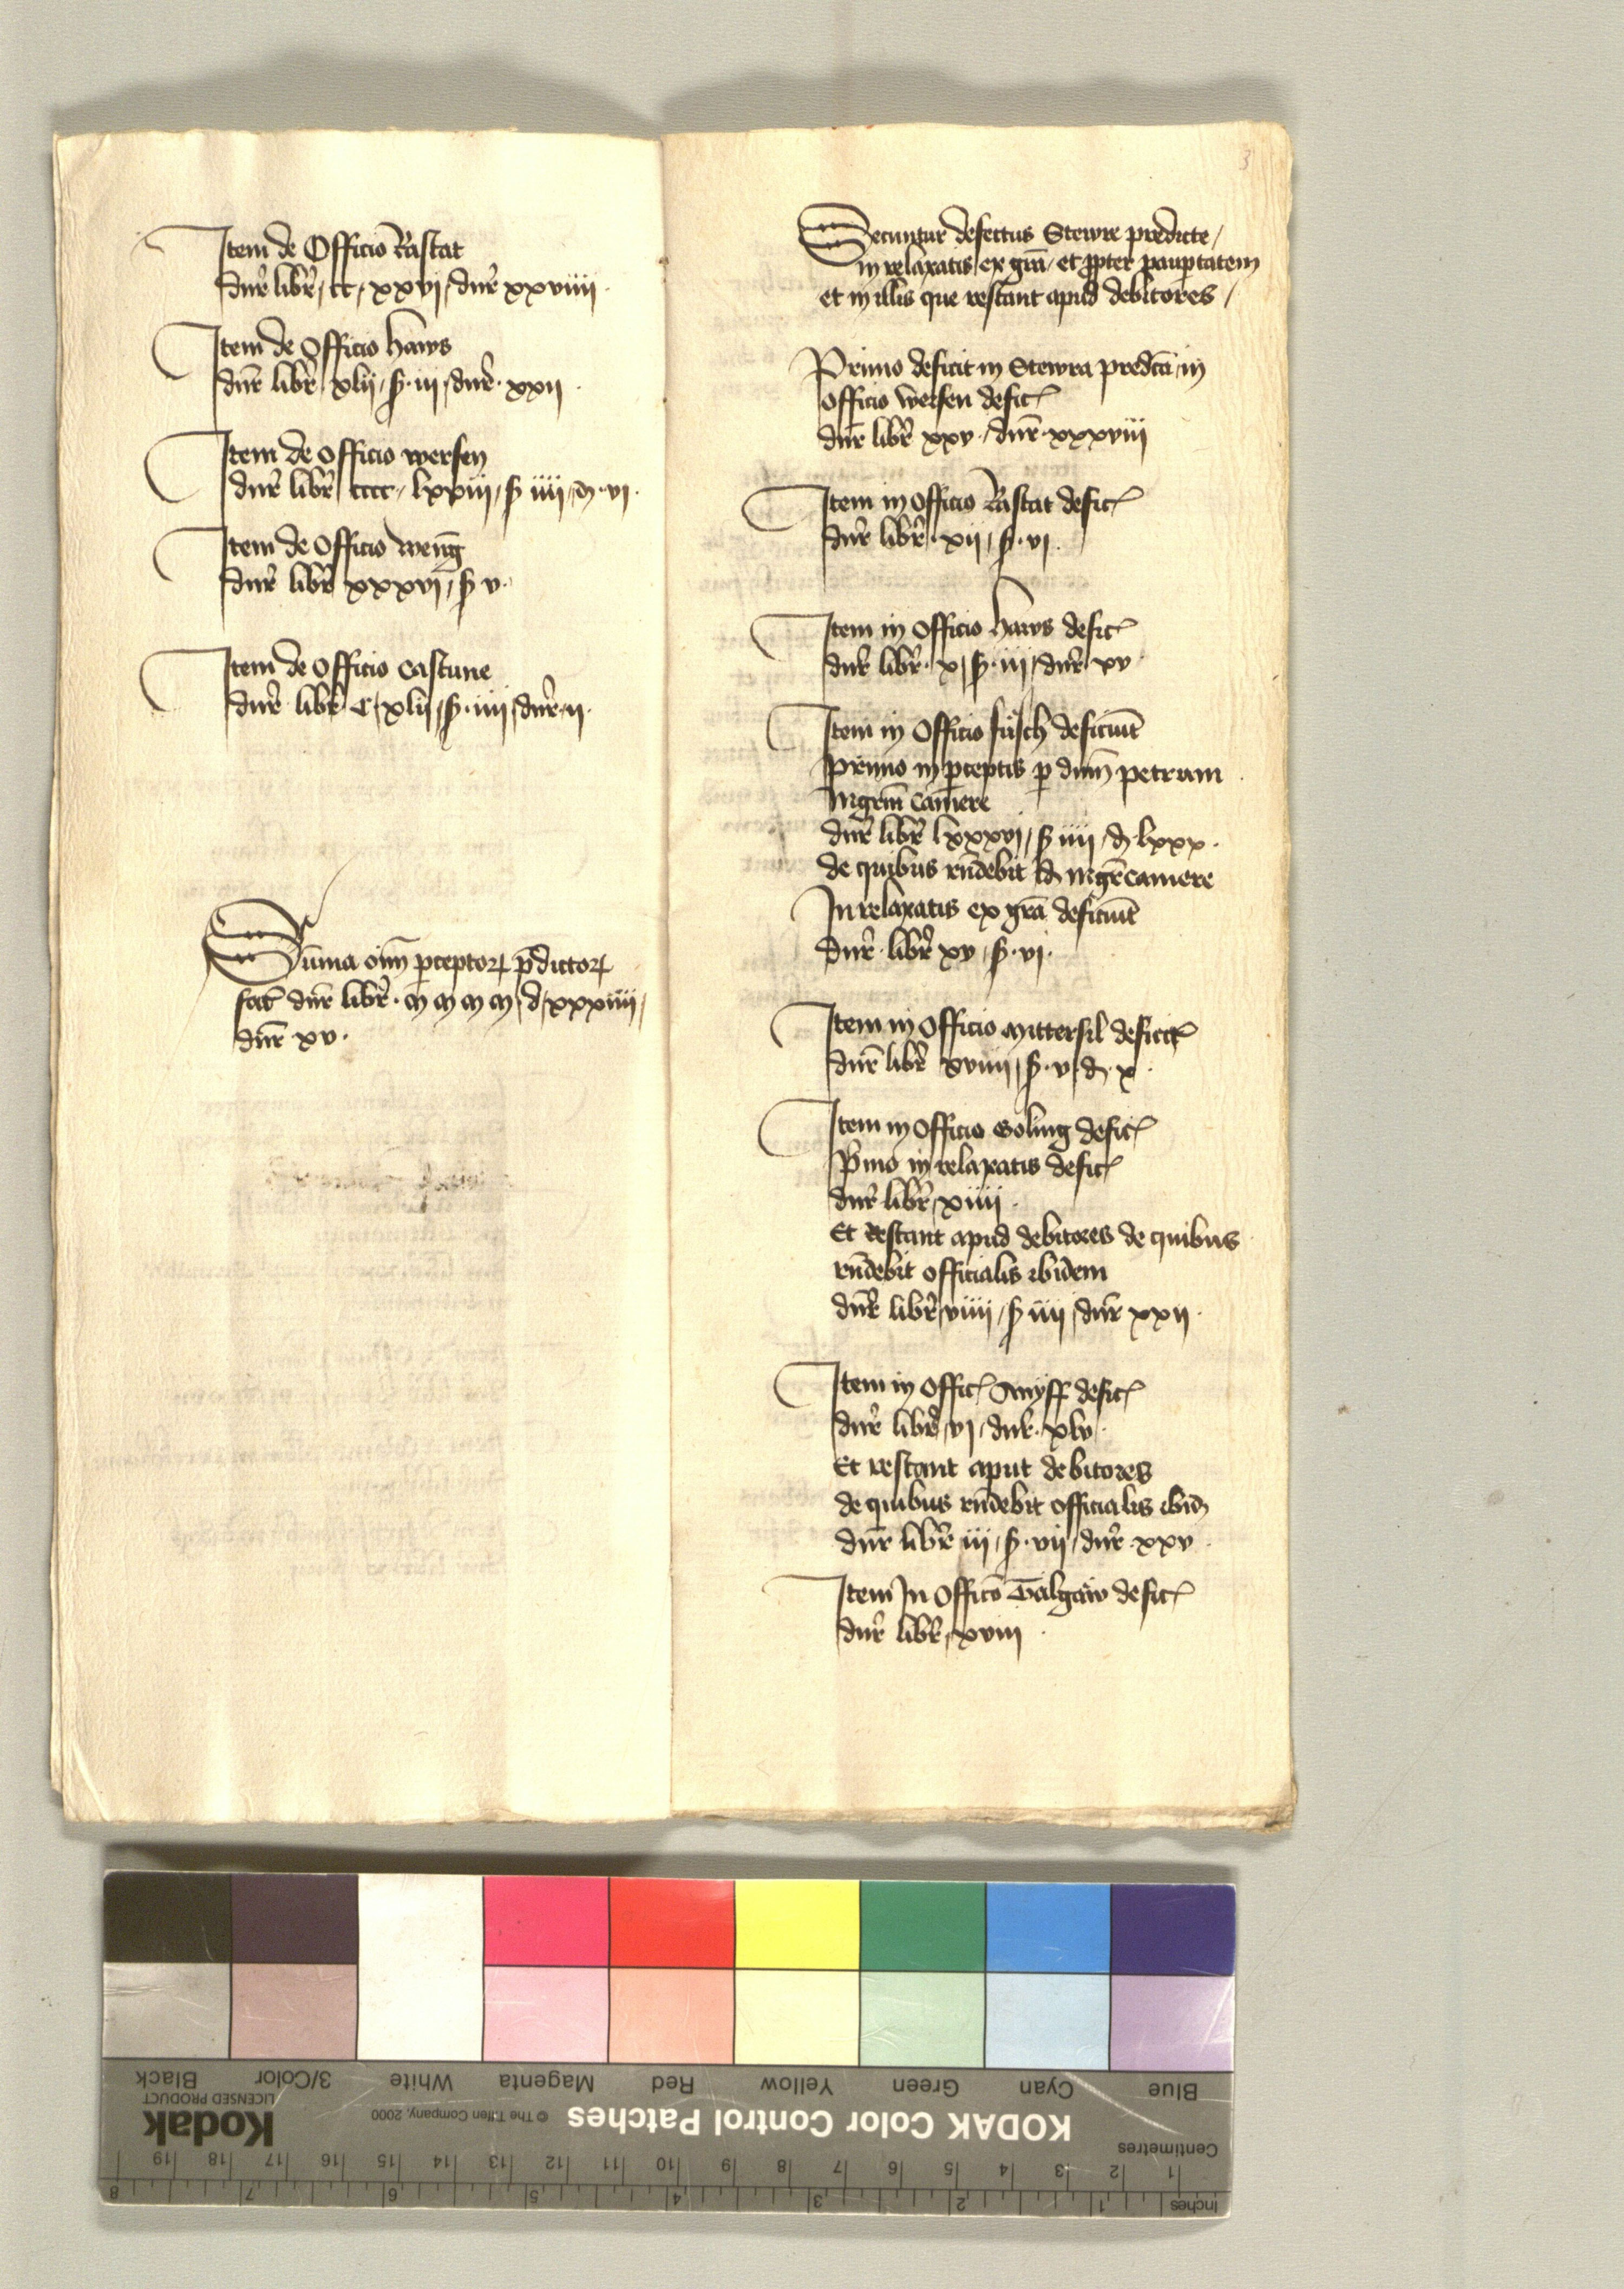 Item de Officio Rastat
dnr̄ libr̄ / cc / xxvi / dnr̄ xxviiii ·
Item de Officio haws
dnr̄ libr̄ xlij / ẞ · iii / dnr̄ · xxij ·
Item de Officio wersen
dnr̄ libr̄ cccc / lxxiii / ẞ iiii / ₰ · vi ·
Item de Officio wenḡ
dnr̄ libr̄ xxxvi / ẞ v ·
Item de Officio Castune
dnr̄ libr̄ C / xlij / ẞ · iiii / dnr̄ · ij ·
Sūma oīm ꝑceptoꝝ p̄dictoꝝ
fac̄ dnr̄ libr̄ · m m m m / d / xxxiiii /
dnr̄ xv ·
3
Secuntur defectus Stewre predicte /
in relaxatis / ex grā / et ꝓpter pauꝑtatem
et in illis que restant apud debitores /
Primo deficit in Stewra predc̄a in
Officio wersen defic̄
dnr̄ libr̄ xxv · / dnr̄ · xxxviii
Item in Officio Rastat defic̄
dnr̄ libr̄ · xij / ẞ · vi ·
Item in Officio haws defic̄
dnr̄ libr̄ · x / ẞ · iii / dnr̄ xv ·
Item in Officio fůsch deficiūt
Primo in ꝑceptis ꝑ dnm̄ petrum
mgrm̄ Camere
dnr̄ libr̄ lxxxvi / ẞ iiii / ₰ · lxxx ·
de quibus rn̄debit id mgr̄ camere
In relaxatis ex grā deficiūt
dnr̄ · libr̄ xv / ẞ · vi ·
Item in Officio mittersil deficit
dnr̄ libr̄ xviiii / ẞ · v / ₰ · x ·
Item in Officio Goling defic̄
p̄mo in relaxatis defic̄
dnr̄ libr̄ / xiiii ·
Et restant apud debitores de quibus
rn̄debit officialis ibidem
dnr̄ libr̄ / viiii / ẞ iiii / dnr̄ xxij ·
Item in Offic̄ Anyff defic̄
dnr̄ libr̄ / vi / dnr̄ · xlv ·
Et restant aput debitores
de quibus rn̄debit officialis ibid̄
dnr̄ libr̄ iii / ẞ · vij / dnr̄ · xxv ·
Item In Officō Talgaw defic̄
dnr̄ libr̄ / xviii ·
KODAK Color Control Patches
Kodak
LICENSED PRODUCT
© The Tiffen Company, 2000
Blue Cyan Green Yellow Red Magenta White 3/Color Black
Centimetres
1 2 3 4 5 6 7 8 9 10 11 12 13 14 15 16 17 18 19
Inches
1 2 3 4 5 6 7 8